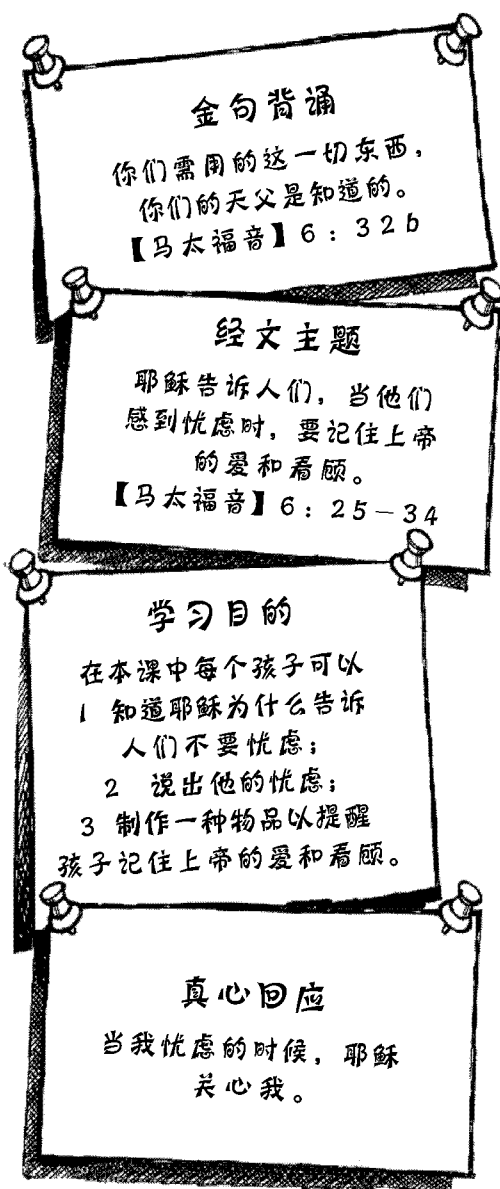 金句背诵
你们需用的这一切东西，
你们的天父是知道的。
【马太福音】6：32b
经文主题
耶稣告诉人们，当他们
感到忧虑时，要记住上帝
的爱和看顾。
【马太福音】6：25－34
学习目的
在本课中每个孩子可以
1 知道耶稣为什么告诉
人们不要忧虑；
2 说出他的忧虑；
3 制作一种物品以提醒
孩子记住上帝的爱和看顾。
真心回应
当我忧虑的时候，耶稣
关心我。